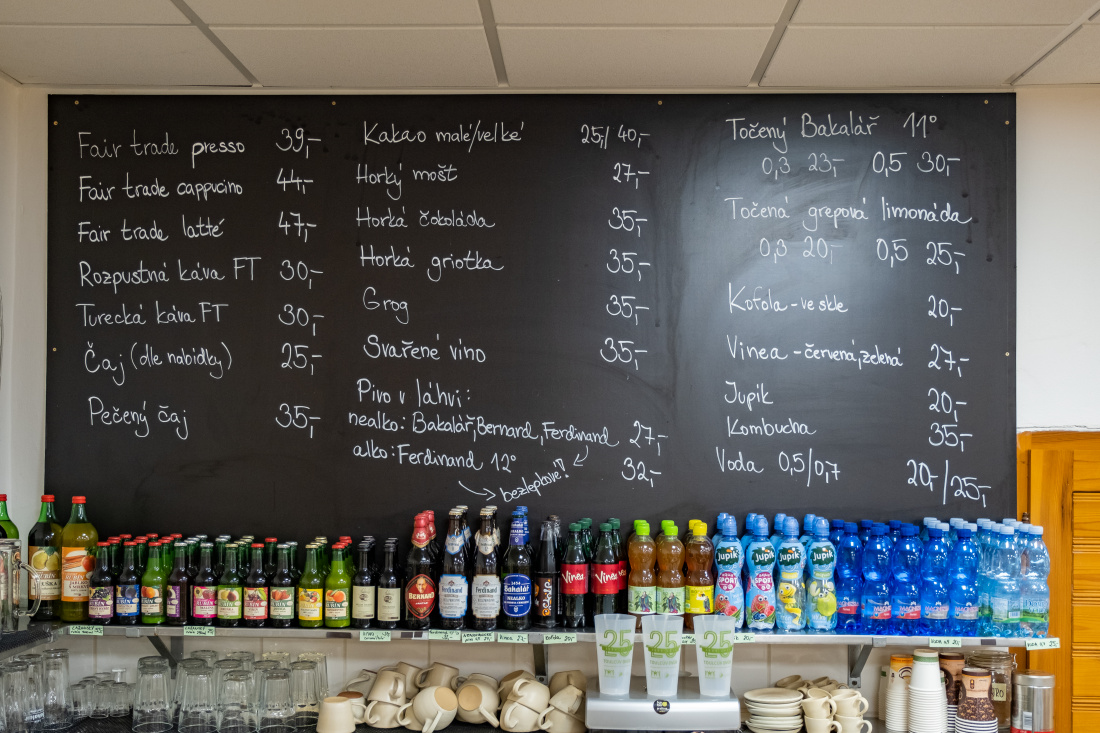 Fair trade presso 39,-
Fair trade cappucino 44,-
Fair trade latté 47,-
Rozpustná káva FT 30,-
Turecká káva FT 30,-
Čaj (dle nabídky) 25,-
Pečený čaj 35,-
Kakao malé/velké 25,-/40,-
Horký mošt 27,-
Horká čokoláda 35,-
Horká griotka 35,-
Grog 35,-
Svařené víno 35,-
Pivo v láhvi:
nealko: Bakalář, Bernard, Ferdinand 27,-
alko: Ferdinand 12° 32,-
bezlepkové!
Točený Bakalář 11°
0,3 23,- 0,5 30,-
Točená grepová limonáda
0,3 20,- 0,5 25,-
Kofola - ve skle 20,-
Vinea - červená, zelená 27,-
Jupík 20,-
Kombucha 35,-
Voda 0,5/0,7 20,-/25,-
RUBÍN
BERNARD
Bakalář
NEALKO
Vinea
Vinea
Jupík
SPORT
Jupík
SPORT
Jupík
Jupík
25
25
25